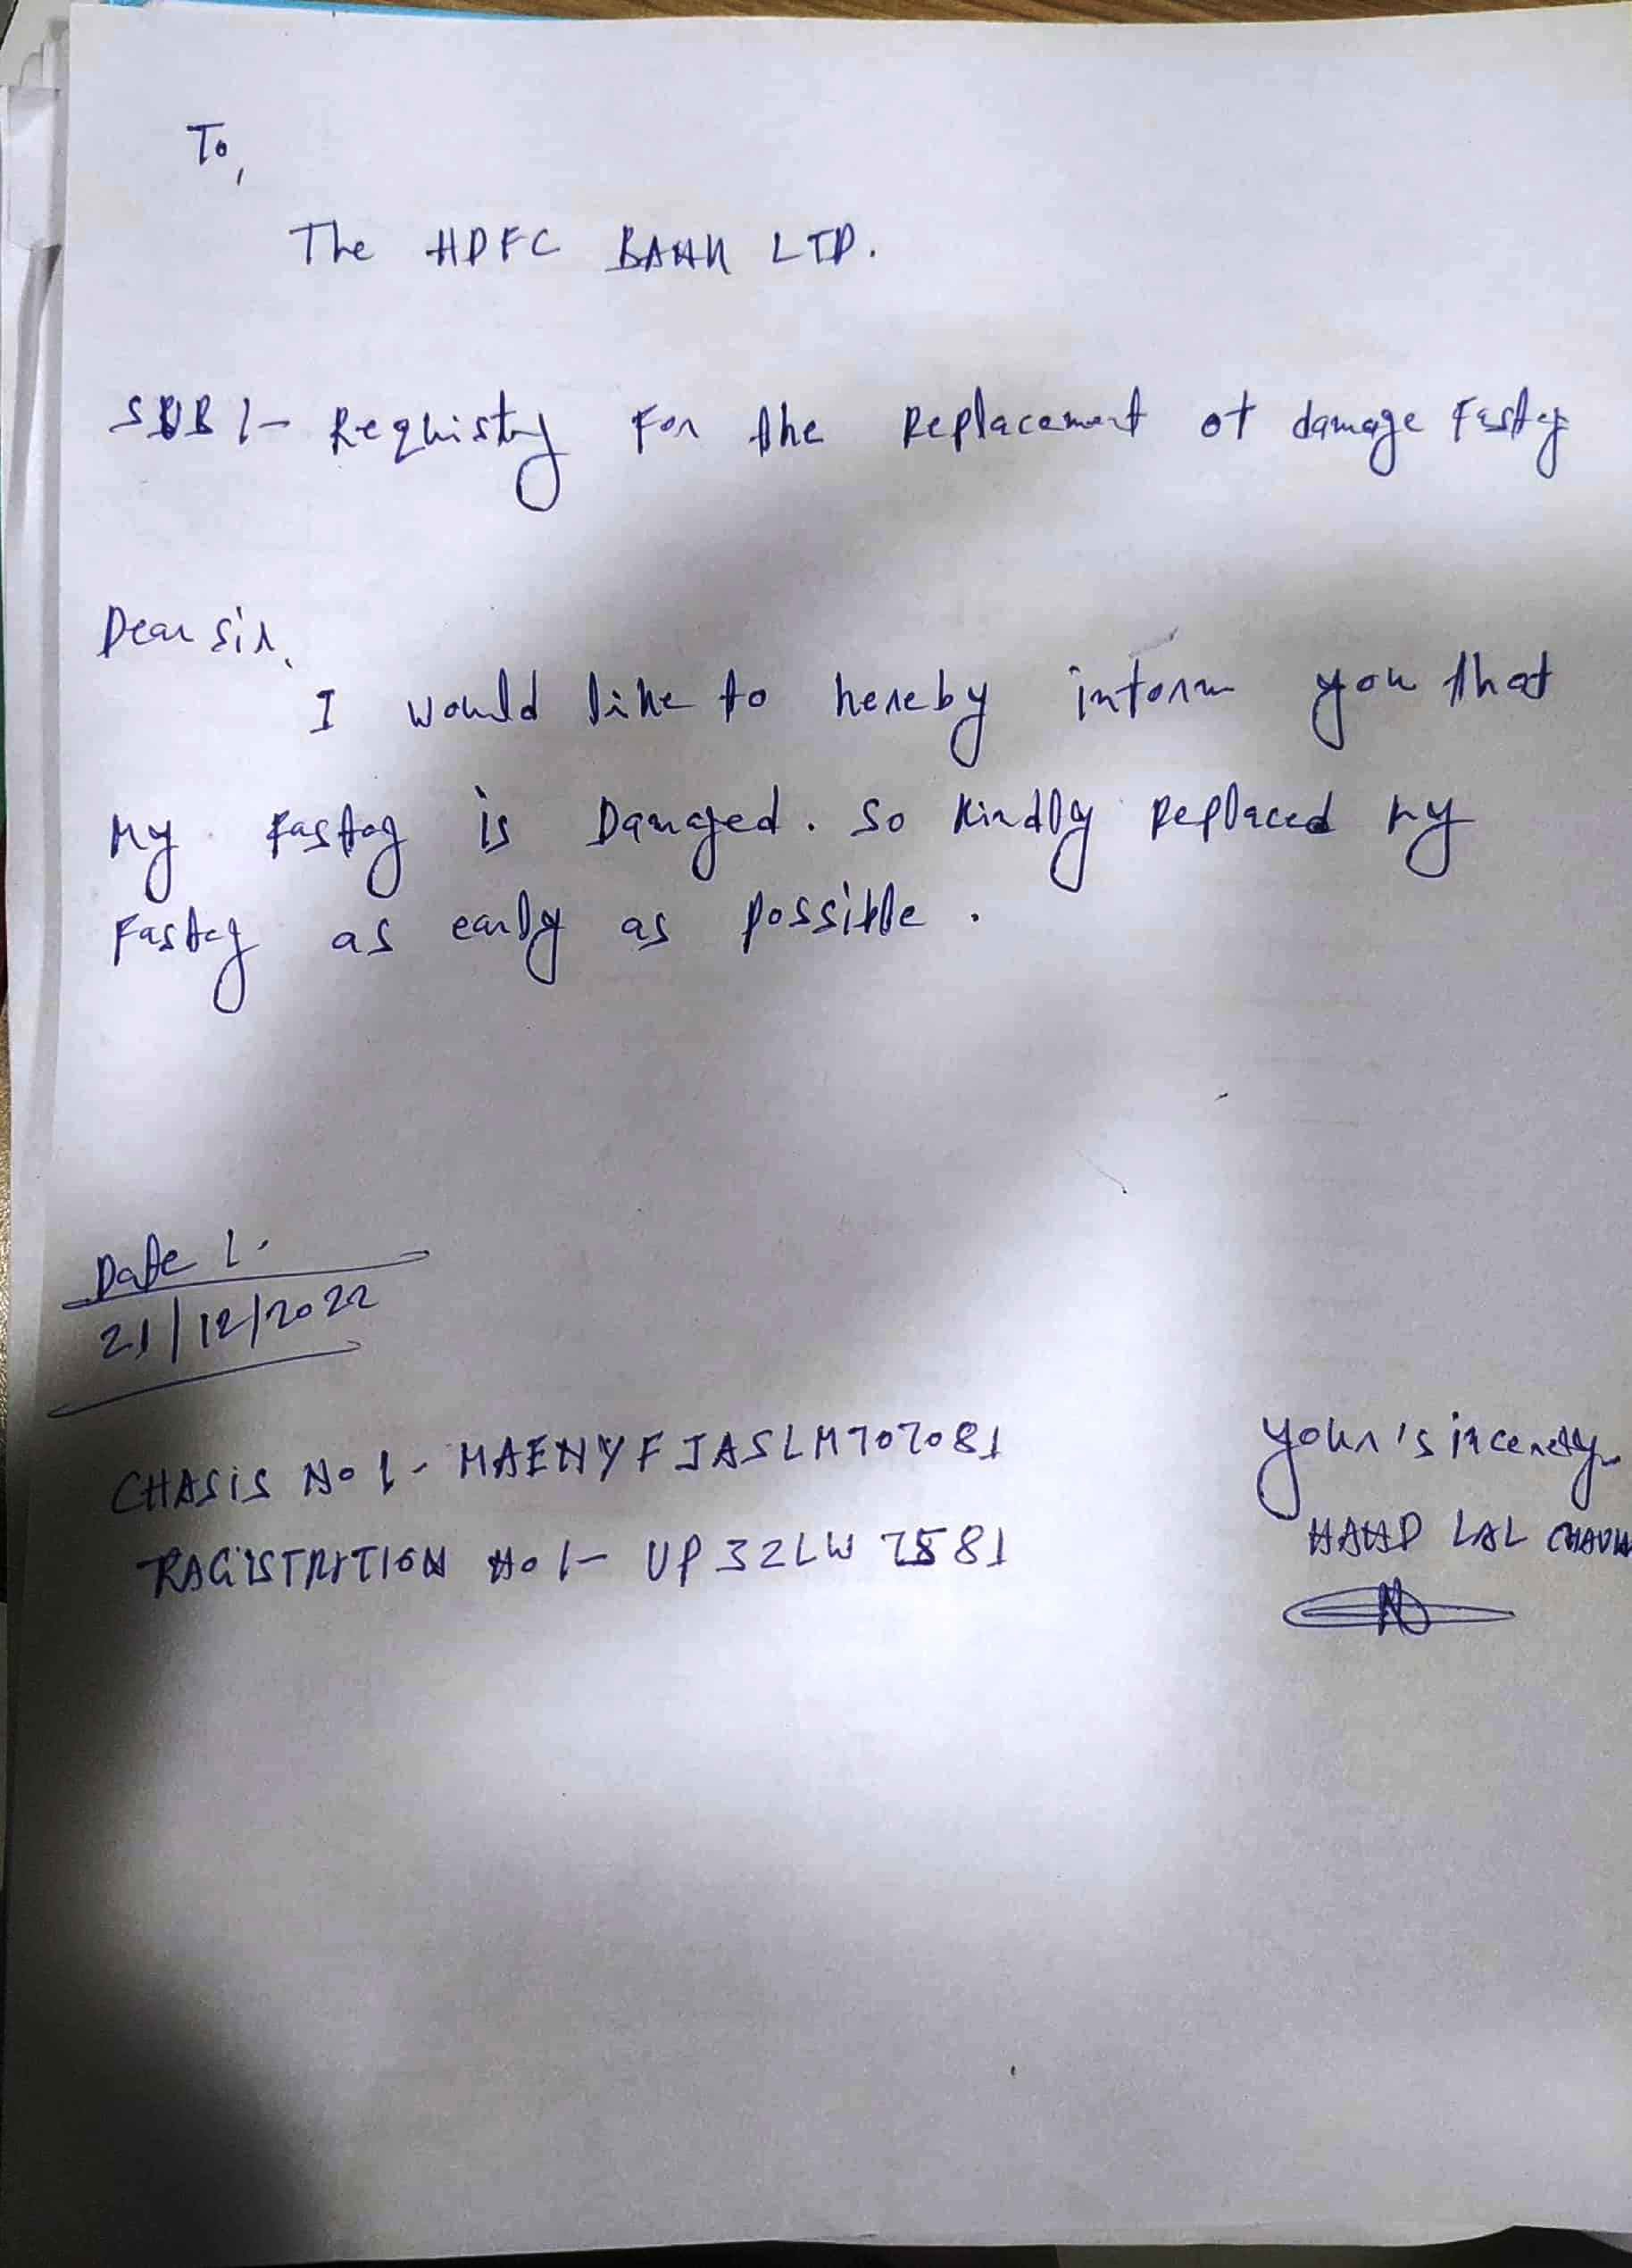 To,
The HDFC BANK LTD.
SUB :- Requisty For the Replacement of damage Fastag
Dear sir,
I would like to hereby inform you that
My Fastag is Damaged. So Kindly Replaced my
Fastag as early as possible.
Date :-
21/12/2022
CHASIS No :- MAENYFJASLM707081
RAGISTRITION No :- UP32LW 7581
your's sincerely
NAND LAL